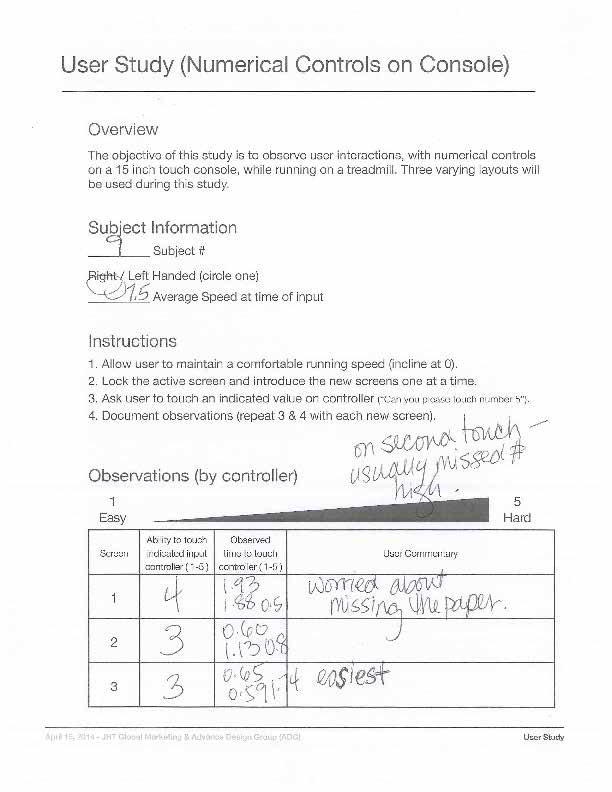 User Study (Numerical Controls on Console)
Overview
The objective of this study is to observe user interactions, with numerical controls
on a 15 inch touch console, while running on a treadmill. Three varying layouts will
be used during this study.
Subject Information
9 Subject #
Right / Left Handed (circle one)
7.5 Average Speed at time of input
Instructions
1. Allow user to maintain a comfortable running speed (incline at 0).
2. Lock the active screen and introduce the new screens one at a time.
3. Ask user to touch an indicated value on controller ("Can you please touch number 5").
4. Document observations (repeat 3 & 4 with each new screen).
on second touch -
usually missed #
high.
Observations (by controller)
1
Easy
5
Hard
Screen
Ability to touch
indicated input
controller (1-5)
Observed
time to touch
controller (1-5)
User Commentary
1 4
1.93
1.88 0.51
worried about
missing the paper.
2 3
0.60
1.13 0.8
3 3
0.65
0.59 1.74
easiest
April 15, 2014 - JHT Global Marketing & Advance Design Group (ADG)
User Study